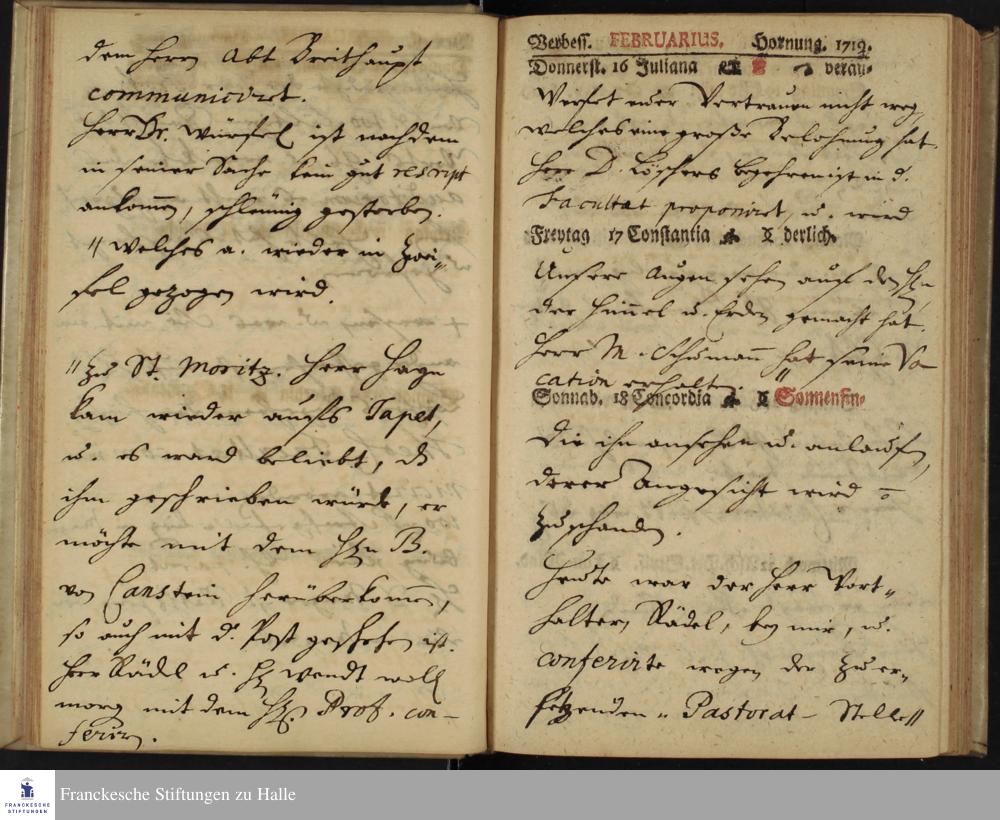 dem Herrn Abt Breithaupt
communiciret.
Herr Dr. Würfel ist nachdem
in seiner Sache kein gut rescript
ankom̄en, schleunig gestorben.
" welches a. wieder in Zwei-
fel gezogen wird.
" Zu St. Moritz. Herr Hagen
kam wieder aufs Tapet,
u. es ward beliebt, dß
ihm geschrieben würde, er
möchte mit dem Hn B.
von Canstein herüberkom̄en,
so auch mit dr Post geschehen ist.
Herr Rädel u. H Wendt woll
morg mit dem H. Prof. con-
ferir.
Verbess. FEBRUARIUS. Hornung. 1719.
Donnerst. 16 Juliana verän-
Werfet euer Vertrauen nicht weg,
welches eine große Belohnung hat.
Herr D. Löschers begehren ist in d.
Facultät proponiret, u. wird
Freytag 17 Constantia derlich.
Unsere Augen sehen auf den Hn,
der Himel u. Erden gemacht hat.
Herr M. Schumann hat seine Vo-
cation erhalten.
Sonnab. 18 Concordia Sonnensin-
Die ihn ansehen u. anlaufen,
derer Angesicht wird
zuschanden.
Heute war der Herr Vort-
halter, Rädel, bey mir, u.
conferirte wegen der zu er-
setzenden " Pastorat-Stelle
Franckesche Stiftungen zu Halle
FRANCKESCHE
STIFTUNGEN